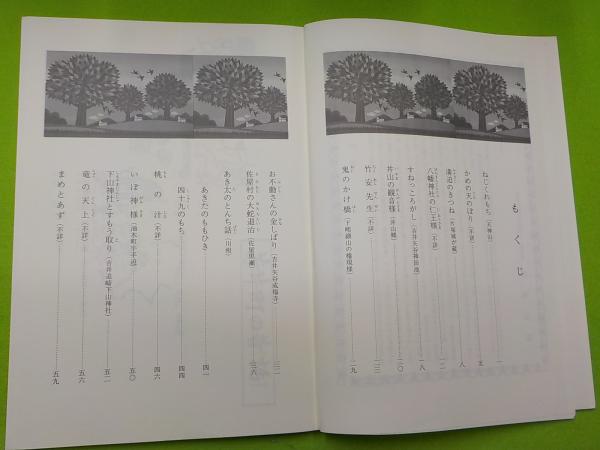 もくじ
ねじくれもち（天神山）……一
かめの天のぼり（不詳）……五
溝迫のきつね……八
八幡神社の仁王様（不詳）……一二
すねっころがし（吉井矢谷神田池）……一八
丼山の観音様……二〇
竹安先生（不詳）……二三
鬼のかけ橋……二九
お不動さんの金しばり（吉井矢谷成福寺）……三二
佐屋村の大蛇退治（佐屋黒瀬）……三六
あき太のとんち話（川相）
あきたのももひき……四一
四十九のもち……四四
桃の汁（不詳）……四六
いぼ神様……五〇
下山神社とすもう取り（吉井迫崎下山神社）……五二
竜の天上（不詳）……五六
まめとあず（不詳）……五九